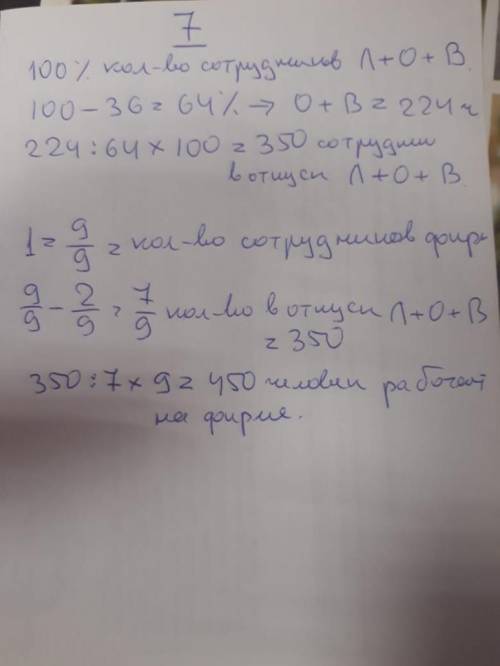 7
100% кол-во сотрудников Л+О+В
100-36=64% → О+В=224ч
224:64×100=350 сотрудни
в отпуск Л+О+В
1=9/9= кол-во сотрудников фир
9/9-2/9=7/9 кол-во в отпуски Л+О+В
=350
350:7×9=450 человек работает
на фирме.